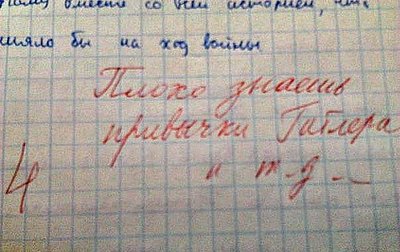 вместе со всей историей,
бы на ход войны
Плохо знаешь
привычки Гитлера
и т.д.
4